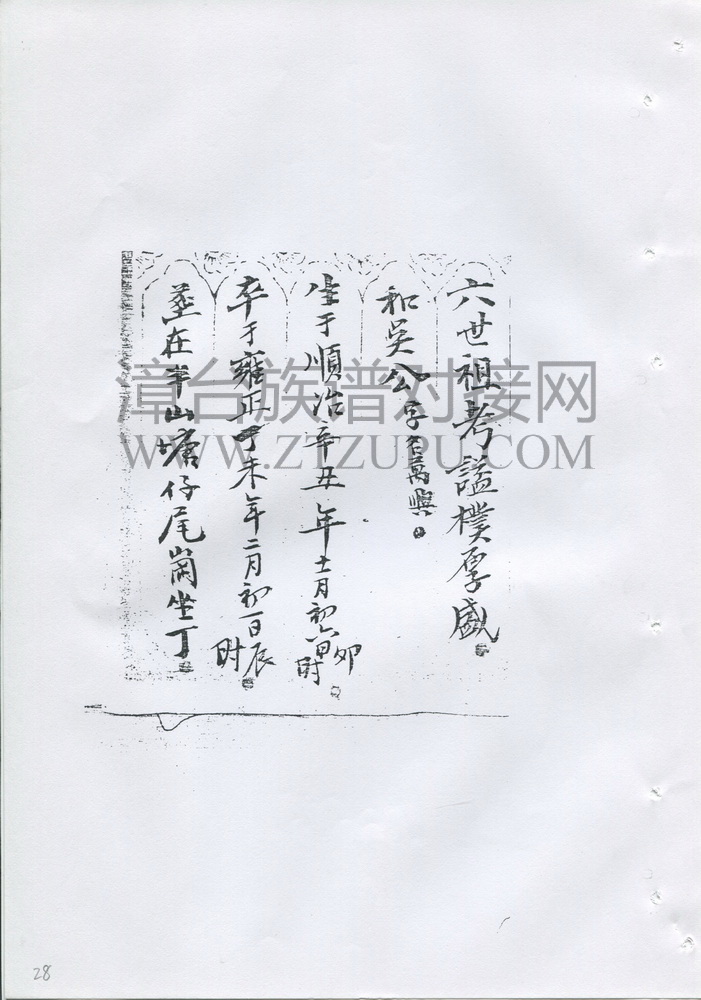 六世祖考謚樸厚盛
和吳公字名萬興
生于順治辛丑年十一月初六日卯時
卒于雍正丁未年二月初一日辰時
塟在半山塘仔尾崗坐丁
漳台族谱对接网
WWW.ZTZUPU.COM
28